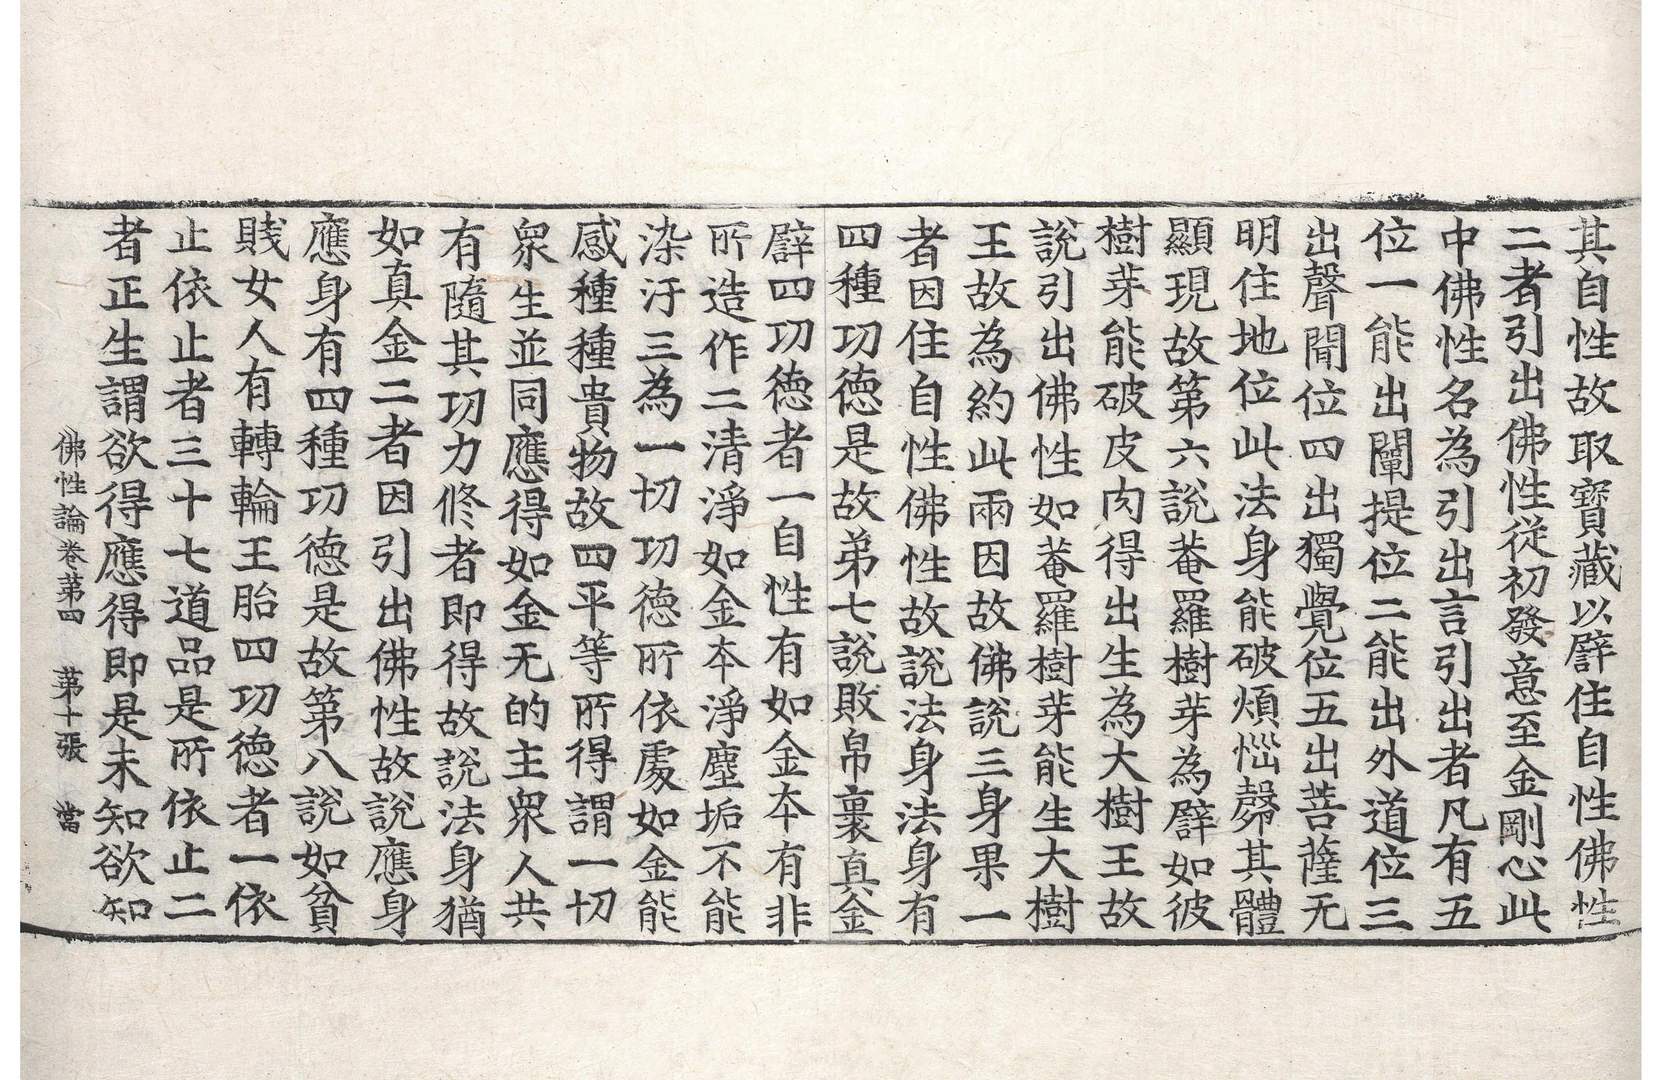 其自性故取寶藏以譬住自性佛性
二者引出佛性從初發意至金剛心此
中佛性名為引出言引出者凡有五
位一能出闡提位二能出外道位三
出聲聞位四出獨覺位五出菩薩无
明住地位此法身能破煩惱㲉其體
顯現故第六說菴羅樹芽為譬如彼
樹芽能破皮肉得出生為大樹王故
說引出佛性如菴羅樹芽能生大樹
王故為約此兩因故佛說三身果一
者因住自性佛性故說法身法身有
四種功德是故第七說敗帛裏真金
譬四功德者一自性有如金本有非
所造作二清淨如金本淨塵垢不能
染汙三為一切功德所依處如金能
感種種貴物故四平等所得謂一切
眾生並同應得如金无的主眾人共
有隨其功力修者即得故說法身猶
如真金二者因引出佛性故說應身
應身有四種功德是故第八說如貧
賎女人有轉輪王胎四功德者一依
止依止者三十七道品是所依止二
者正生謂欲得應得即是未知欲知
佛性論卷第四　第十張　當